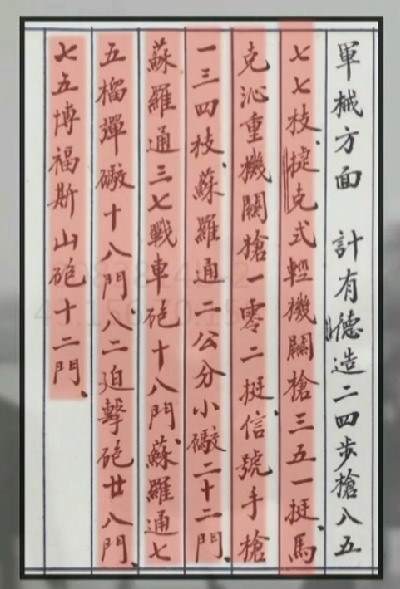 軍械方面　計有德造二四步槍八五
七七枝、捷克式輕機關槍三五一挺、馬
克沁重機關槍一零二挺、信號手槍
一三四枝、蘇羅通二公分小礮二十二門、
蘇羅通三七戰車砲十八門、蘇羅通七
五榴彈礮十八門、八二迫擊砲廿八門、
七五博福斯山砲十二門、